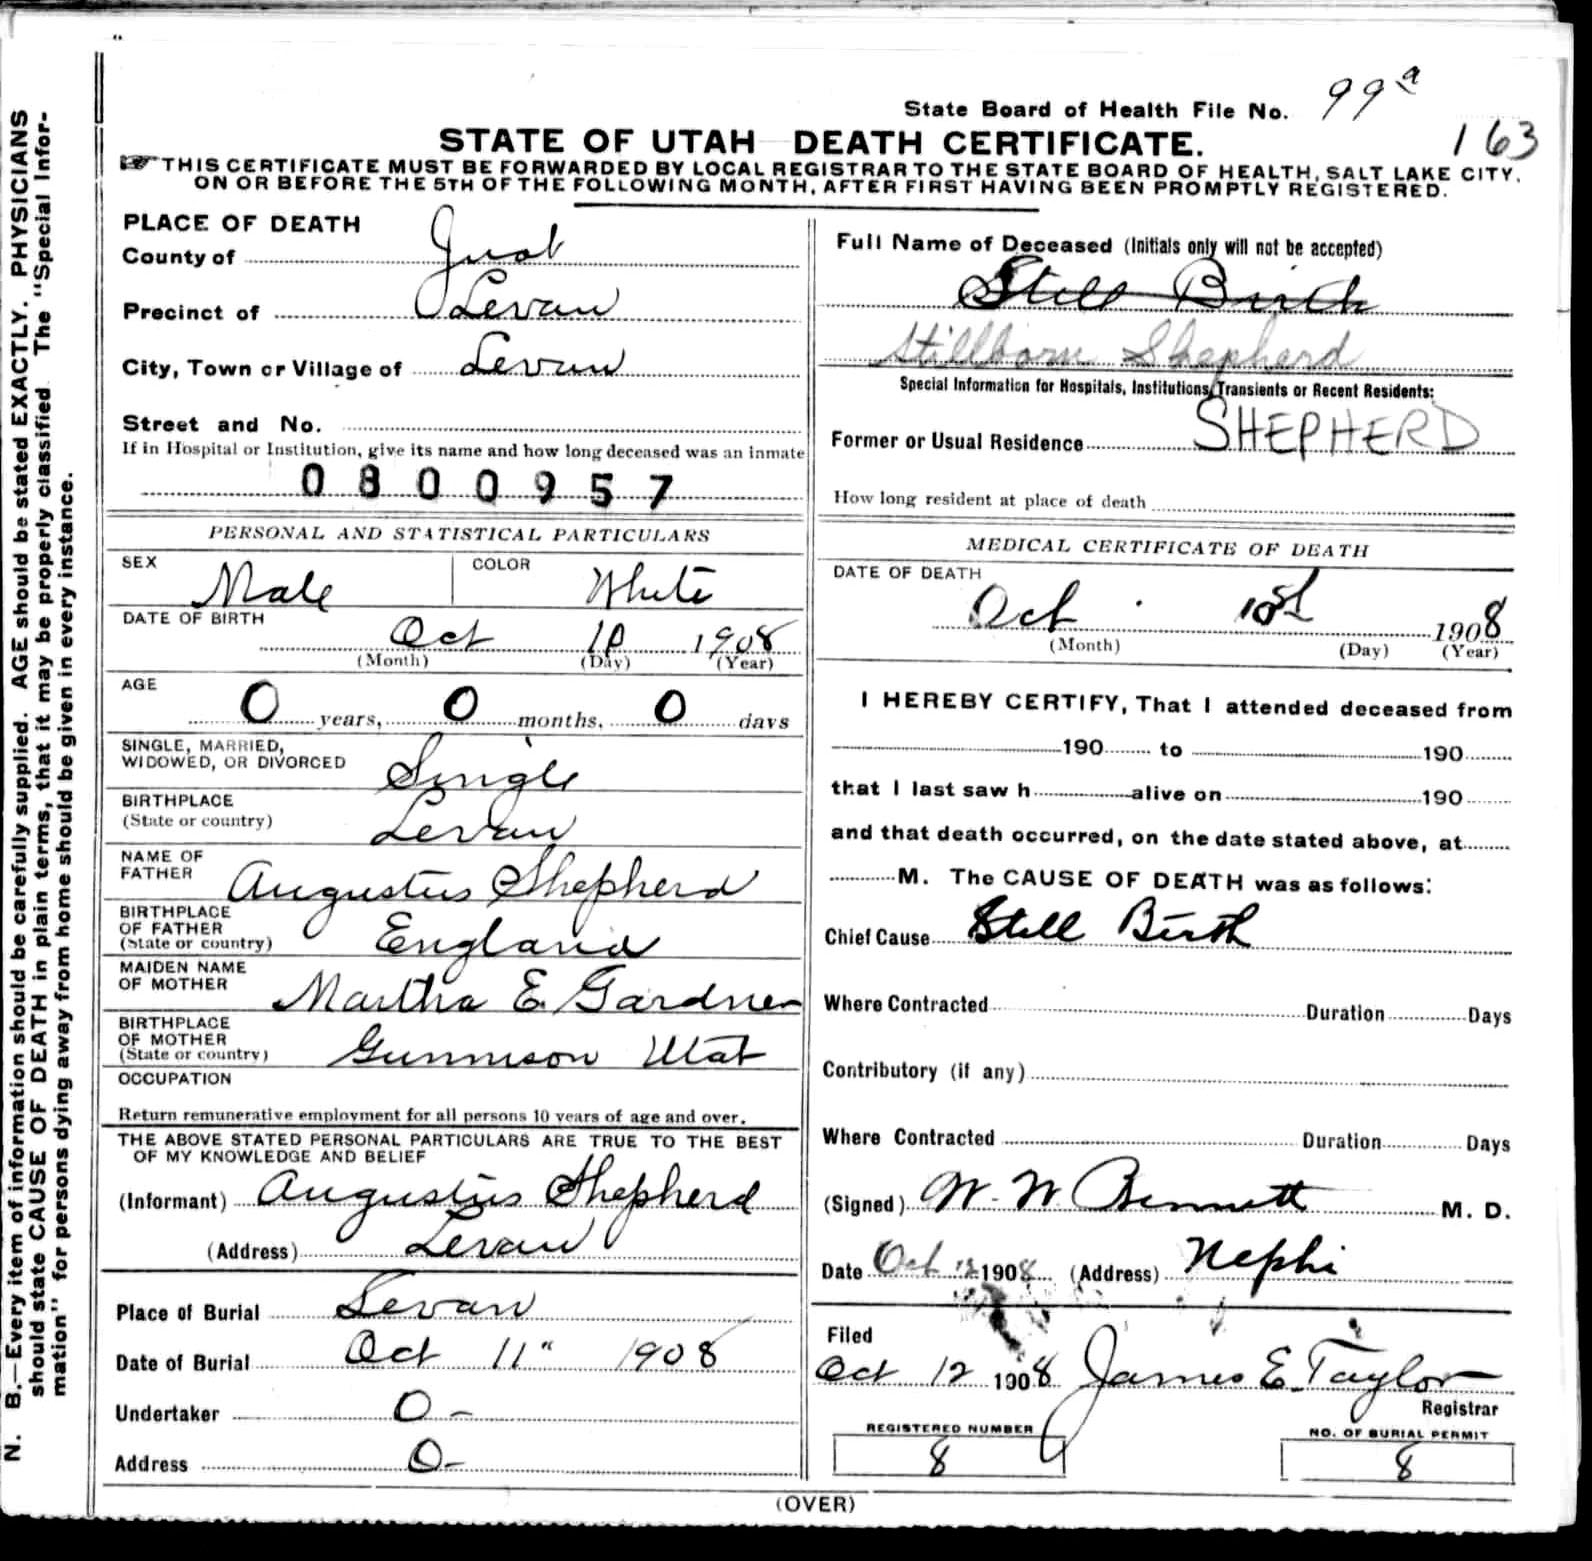 State Board of Health File No. 99a
163
STATE OF UTAH DEATH CERTIFICATE.
THIS CERTIFICATE MUST BE FORWARDED BY LOCAL REGISTRAR TO THE STATE BOARD OF HEALTH, SALT LAKE CITY.
ON OR BEFORE THE 5TH OF THE FOLLOWING MONTH, AFTER FIRST HAVING BEEN PROMPTLY REGISTERED.
N. B.—Every item of information should be carefully supplied. AGE should be stated EXACTLY. PHYSICIANS
should state CAUSE OF DEATH in plain terms, that it may be properly classified. The "Special Infor-
mation" for persons dying away from home should be given in every instance.
PLACE OF DEATH
County of Juab
Precinct of Levan
City, Town or Village of Levan
Street and No.
If in Hospital or Institution, give its name and how long deceased was an inmate
0800957
PERSONAL AND STATISTICAL PARTICULARS
SEX Male COLOR White
DATE OF BIRTH Oct 10 1908
(Month) (Day) (Year)
AGE
0 years, 0 months, 0 days
SINGLE, MARRIED,
WIDOWED, OR DIVORCED Single
BIRTHPLACE
(State or country) Levan
NAME OF
FATHER Augustus Shepherd
BIRTHPLACE
OF FATHER
(State or country) England
MAIDEN NAME
OF MOTHER Martha E. Gardner
BIRTHPLACE
OF MOTHER
(State or country) Gunnison Utah
OCCUPATION
Return remunerative employment for all persons 10 years of age and over.
THE ABOVE STATED PERSONAL PARTICULARS ARE TRUE TO THE BEST
OF MY KNOWLEDGE AND BELIEF
(Informant) Augustus Shepherd
(Address) Levan
Place of Burial Levan
Date of Burial Oct 11" 1908
Undertaker 0 -
Address 0 -
Full Name of Deceased (Initials only will not be accepted)
Still Birth
Stillborn Shepherd
Special Information for Hospitals, Institutions, Transients or Recent Residents:
Former or Usual Residence SHEPHERD
How long resident at place of death
MEDICAL CERTIFICATE OF DEATH
DATE OF DEATH
Oct 10st 1908
(Month) (Day) (Year)
I HEREBY CERTIFY, That I attended deceased from
190 to 190
that I last saw h alive on 190
and that death occurred, on the date stated above, at
M. The CAUSE OF DEATH was as follows:
Chief Cause Still Birth
Where Contracted Duration Days
Contributory (if any)
Where Contracted Duration Days
(Signed) W. W. Bennett M. D.
Date Oct 12 1908 (Address) Nephi
Filed
Oct 12 1908 James E. Taylor
Registrar
REGISTERED NUMBER NO. OF BURIAL PERMIT
8 8
(OVER)